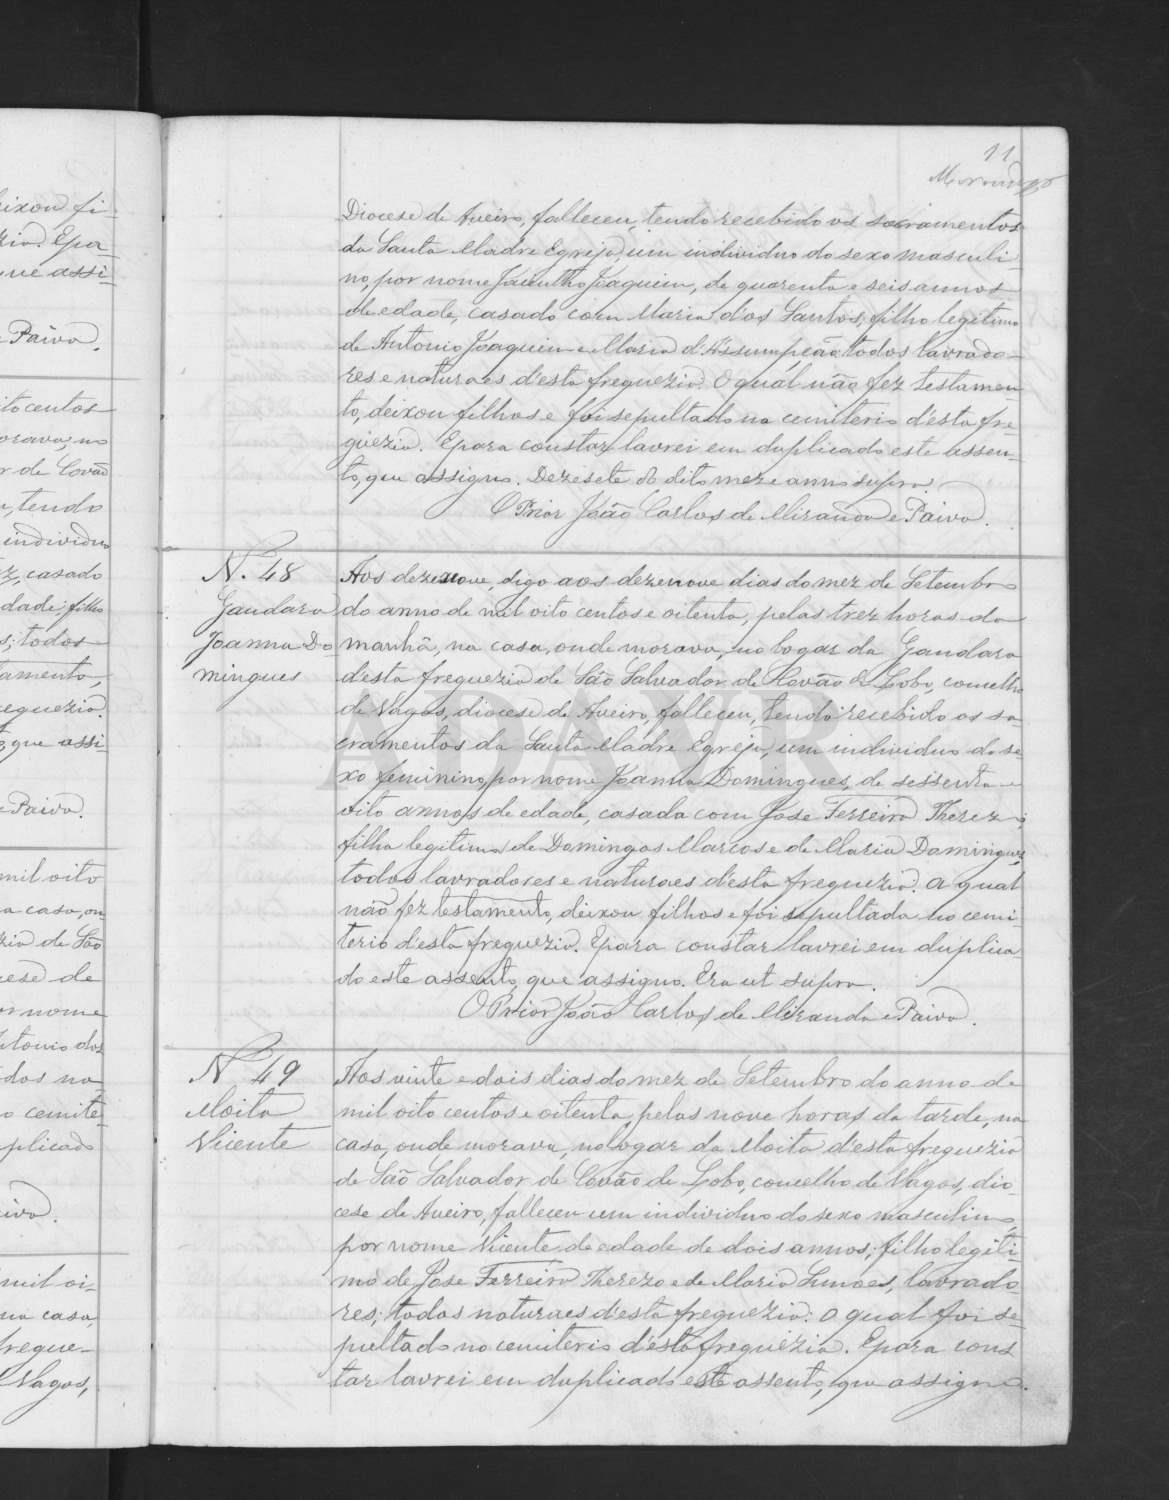 11
Diocese de Aveiro, falleceu, tendo recebido os sacramentos
da Santa Madre Egreja, um individuo do sexo masculi-
no, por nome Jacintho Joaquim, de quarenta e seis annos
de edade, casado com Maria dos Santos, filho legitimo
de Antonio Joaquim e Maria d'Assumpção todos lavrado-
res e naturaes d'esta freguezia. O qual não fez testamen-
to, deixou filhos e foi sepultado no cemiterio d'esta fre-
guezia. Epara constar lavrei em duplicado este assen-
to, que assigno. Dezesete do dito mez e anno supra.
O Prior João Carlos de Miranda e Paiva.
N. 48
Gandara
Joanna Do
mingues
Aos dezenove, digo aos dezenove dias do mez de Setembro
do anno de mil oito centos e oitenta, pelas trez horas da
manhã, na casa, onde morava, no logar da Gandara
d'esta freguezia de São Salvador de Covão de Lobo, concelho
de Vagos, diocese de Aveiro, falleceu, tendo recebido os sa-
cramentos da Santa Madre Egreja, um individuo do se-
xo feminino, por nome Joanna Domingues, de sessenta e
oito annos de edade, casada com José Ferreira Therezo,
filha legitima de Domingos Marcos e de Maria Domingues,
todos lavradores e naturaes d'esta freguezia. A qual
não fez testamento, deixou filhos e foi sepultada no cemi-
terio d'esta freguezia. Epara constar lavrei em duplica-
do este assento, que assigno. Era ut supra.
O Prior João Carlos de Miranda e Paiva.
N 49
Moita
Vicente
Aos vinte e dois dias do mez de Setembro do anno de
mil oito centos e oitenta, pelas nove horas da tarde, na
casa, onde morava, no logar da Moita d'esta freguezia
de São Salvador de Covão de Lobo, concelho de Vagos, dio-
cese de Aveiro, falleceu um individuo do sexo masculino,
por nome Vicente, de edade de dois annos, filho legiti-
mo de José Ferreira Therezo e de Maria Simoes, lavrado-
res, todos naturaes d'esta freguezia: o qual foi se-
pultado no cemiterio d'esta freguezia. Epara cons
tar lavrei em duplicado este assento, que assigno.
ADAVR